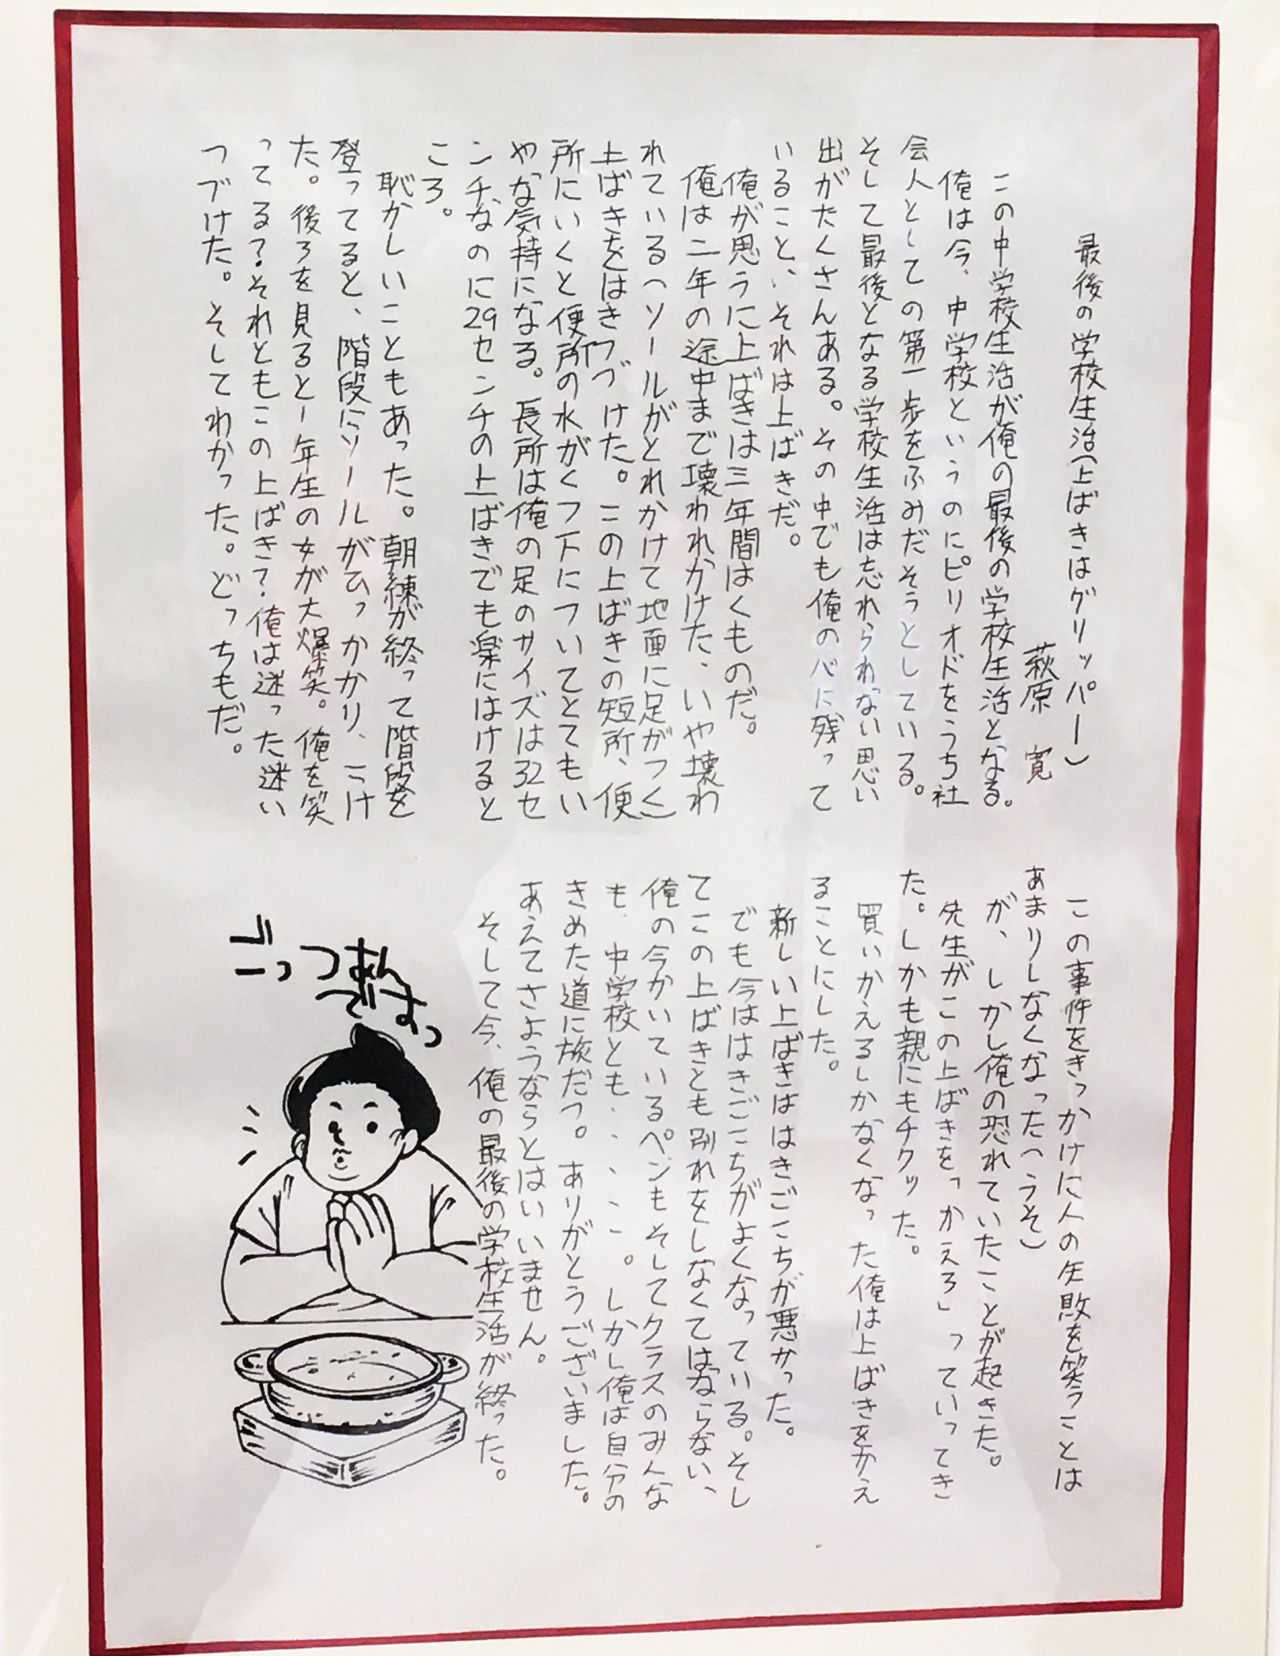 最後の学校生活(上ばきはグリッパー)
萩原 寛
この中学校生活が俺の最後の学校生活となる。
俺は今、中学校というのにピリオドをうち社
会人としての第一歩をふみだそうとしている。
そして最後となる学校生活は忘れられない思い
出がたくさんある。その中でも俺の心に残って
いること、それは上ばきだ。
俺が思うに上ばきは三年間はくものだ。
俺は二年の途中まで壊われかけた、いや壊わ
れている(ソールがとれかけて地面に足がつく)
上ばきをはきつづけた。この上ばきの短所、便
所にいくと便所の水がくつ下についてとてもい
やな気持になる。長所は俺の足のサイズは32セ
ンチなのに29センチの上ばきでも楽にはけると
ころ。
恥かしいこともあった。朝練が終って階段を
登ってると、階段にソールがひっかかり、こけ
た。後ろを見ると1年生の女が大爆笑。俺を笑
ってる?それともこの上ばき?俺は迷った迷い
つづけた。そしてわかった。どっちもだ。
この事件をきっかけに人の失敗を笑うことは
あまりしなくなった(うそ)
が、しかし俺の恐れていたことが起きた。
先生がこの上ばきを「かえろ」っていってき
た。しかも親にもチクッた。
買いかえるしかなくなった俺は上ばきをかえ
ることにした。
新しい上ばきははきごこちが悪かった。
でも今ははきごこちがよくなっている。そし
てこの上ばきとも別れをしなくてはならない、
俺の今かいているペンもそしてクラスのみんな
も、中学校とも、、、、。しかし俺は自分の
きめた道に旅だつ。ありがとうございました。
あえてさようならとはいいません。
そして今、俺の最後の学校生活が終った。
ごっつあんですっ